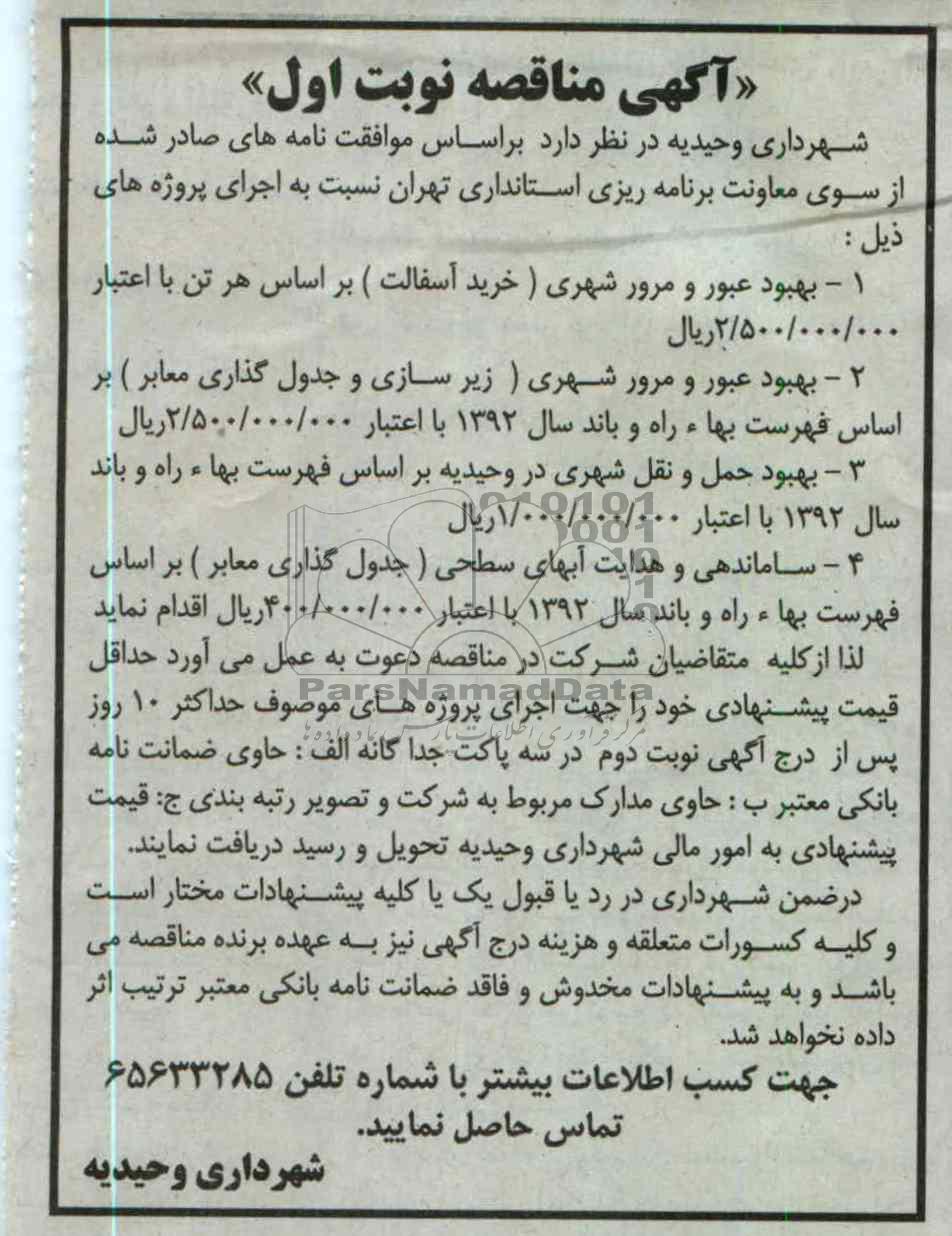 «آگهی مناقصه نوبت اول»
شهرداری وحیدیه در نظر دارد براساس موافقت نامه های صادر شده
از سوی معاونت برنامه ریزی استانداری تهران نسبت به اجرای پروژه های
ذیل :
۱ - بهبود عبور و مرور شهری ( خرید آسفالت ) بر اساس هر تن با اعتبار
۲/۵۰۰/۰۰۰/۰۰۰ریال
۲ - بهبود عبور و مرور شهری ( زیر سازی و جدول گذاری معابر ) بر
اساس فهرست بها ء راه و باند سال ۱۳۹۲ با اعتبار ۲/۵۰۰/۰۰۰/۰۰۰ریال
۳ - بهبود حمل و نقل شهری در وحیدیه بر اساس فهرست بها ء راه و باند
سال ۱۳۹۲ با اعتبار ۱/۰۰۰/۰۰۰/۰۰۰ریال
۴ - ساماندهی و هدایت آبهای سطحی ( جدول گذاری معابر ) بر اساس
فهرست بها ء راه و باند سال ۱۳۹۲ با اعتبار ۴۰۰/۰۰۰/۰۰۰ریال اقدام نماید
لذا ازکلیه متقاضیان شرکت در مناقصه دعوت به عمل می آورد حداقل
ParsNamadData
قیمت پیشنهادی خود را جهت اجرای پروژه های موصوف حداکثر ۱۰ روز
پس از درج آگهی نوبت دوم در سه پاکت جدا گانه الف : حاوی ضمانت نامه
بانکی معتبر ب : حاوی مدارک مربوط به شرکت و تصویر رتبه بندی ج: قیمت
پیشنهادی به امور مالی شهرداری وحیدیه تحویل و رسید دریافت نمایند.
درضمن شهرداری در رد یا قبول یک یا کلیه پیشنهادات مختار است
و کلیه کسورات متعلقه و هزینه درج آگهی نیز به عهده برنده مناقصه می
باشد و به پیشنهادات مخدوش و فاقد ضمانت نامه بانکی معتبر ترتیب اثر
داده نخواهد شد.
جهت کسب اطلاعات بیشتر با شماره تلفن ۶۵۶۳۳۲۸۵
تماس حاصل نمایید.
شهرداری وحیدیه